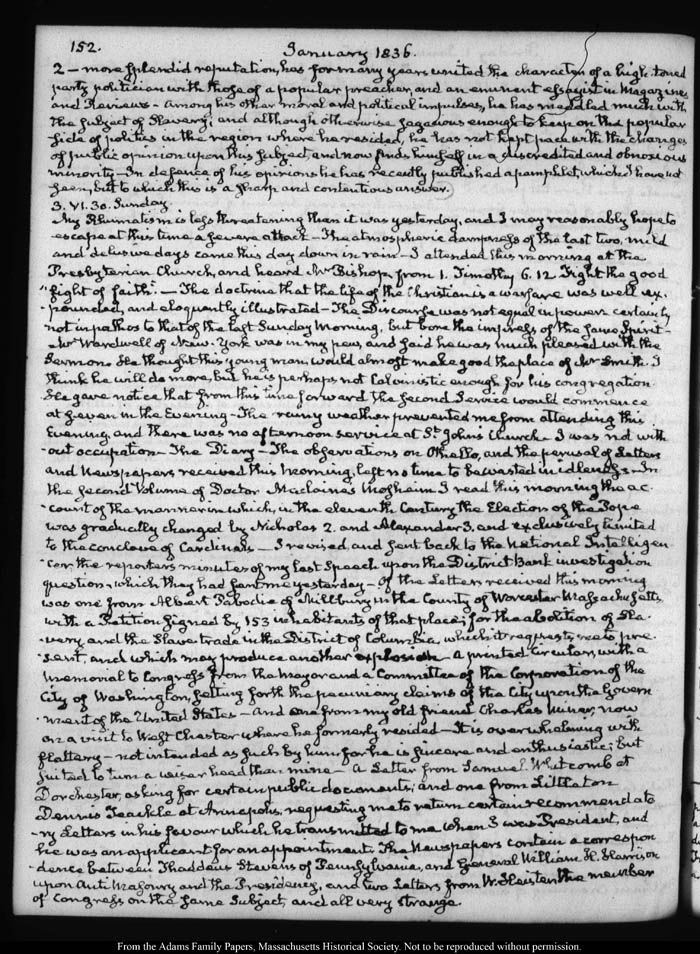 152. January 1836.
2 — more splendid reputation, has for many years united the character of a high-toned
party politician with those of a popular preacher, and an eminent essayist in Magazines
and Reviews – Among his other moral and political impulses, he has meddled much with
the subject of Slavery; and although otherwise sagacious enough to keep on the popular
side of politics in the region where he resided, he has not kept pace with the changes
of public opinion upon this subject, and now finds himself in a discredited and obnoxious
minority – In defence of his opinions he has recently published a pamphlet, which I have not
seen, but to which this is a sharp and contentious answer.
3. VI. 30. Sunday.
My Rhumatism is less threatening than it was yesterday, and I may reasonably hope to
escape at this time a severe attack – The atmospheric dampness of the last two, mild
and delusive days came this day down in rain – I attended this morning at the
Presbyterian Church, and heard Mr Bishop, from 1. Timothy 6. 12 Fight the good
"fight of faith". — The doctrine that the life of the Christian is a warfare was well ex-
-pounded, and eloquently illustrated – The Discourse was not equal in power certainly
not in pathos to that of the last Sunday Morning, but bore the impress of the same Spirit –
Mr Wardwell of New-York was in my pew, and said he was much pleased with the
Sermon. He thought this young man would almost make good the place of Mr Smith. I
think he will do more, but he is perhaps not Calvinistic enough for his congregation
He gave notice that from this time forward the second Service would commence
at seven in the Evening – The rainy weather prevented me from attending this
Evening, and there was no afternoon service at St. John's Church – I was not with-
-out occupation – The Diary – The observations on Othello, and the perusal of Letters
and Newspapers received this morning, left no time to be wasted in idleness – In
the second Volume of Doctor Maclaine's Mosheim I read this morning the ac-
-count of the manner in which, in the eleventh Century the Election of the Pope
was gradually changed by Nicholas 2. and Alexander 3. and exclusively limited
to the conclave of Cardinals — I revised, and sent back to the National Intelligen
-cer, the reporters minutes of my last Speech upon the District Bank investigation
question, which they had sent me yesterday – Of the Letters received this morning
was one from Albert Pabodie of Millbury in the County of Worcester Massachusetts
with a Petition signed by 153 inhabitants of that place, for the abolition of Sla-
-very, and the Slave trade in the District of Columbia, which it requests me to pre-
-sent, and which may produce another explosion – A printed Circular, with a
Memorial to Congress from the Mayor and a Committee of the Corporation of the
City of Washington, setting forth the pecuniary claims of the City upon the Govern
-ment of the United States – And one from my old friend Charles Miner, now
on a visit to West Chester where he formerly resided – It is overwhelming with
flattery – not intended as such by him, for he is sincere and enthusiastic; but
suited to turn a wiser head than mine – A Letter from Samuel Whitcomb at
Dorchester, asking for certain public documents; and one from Littleton
Dennis Teackle at Annapolis, requesting me to return certain recommendato
-ry Letters in his favour which he transmitted to me when I was President, and
he was an applicant for an appointment. The Newspapers contain a correspon
-dence between Thaddeus Stevens of Pennsylvania, and General William H. Harrison
upon Anti Masonry and the Presidency, and two Letters from W. Heister the member
of Congress on the same subject, and all very strange.
From the Adams Family Papers, Massachusetts Historical Society. Not to be reproduced without permission.